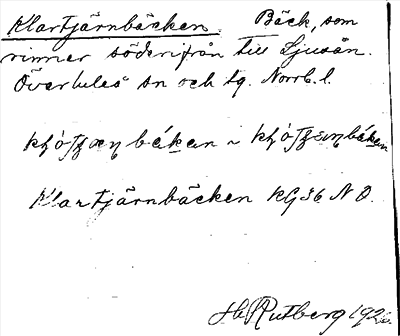 Klartjärnbäcken. Bäck, som
rinner söderifrån till Ljusån.
Överluleå sn och tg. Norrb. l.
bäkan ~
Klartjärnbäcken KG36 N O.
H Rutberg 1926.